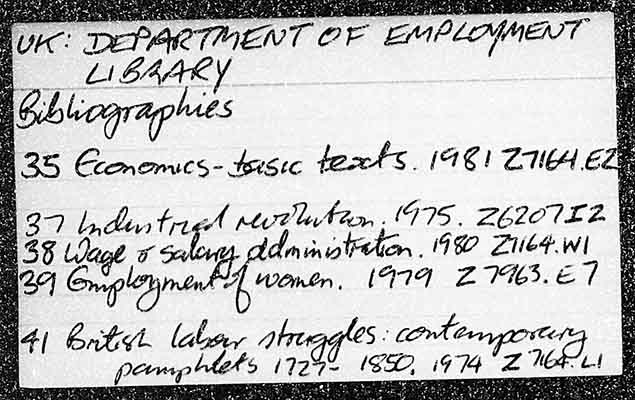 UK: DEPARTMENT OF EMPLOYMENT
LIBRARY
Bibliographies
35 Economics - basic texts. 1981 Z7164.E2
37 Industrial revolution. 1975. Z6207 I2
38 Wage & salary administration. 1980 Z7164.W1
39 Employment of women. 1979 Z7963.E7
41 British labour struggles: contemporary
pamphlets 1727-1850. 1974 Z7164.L1